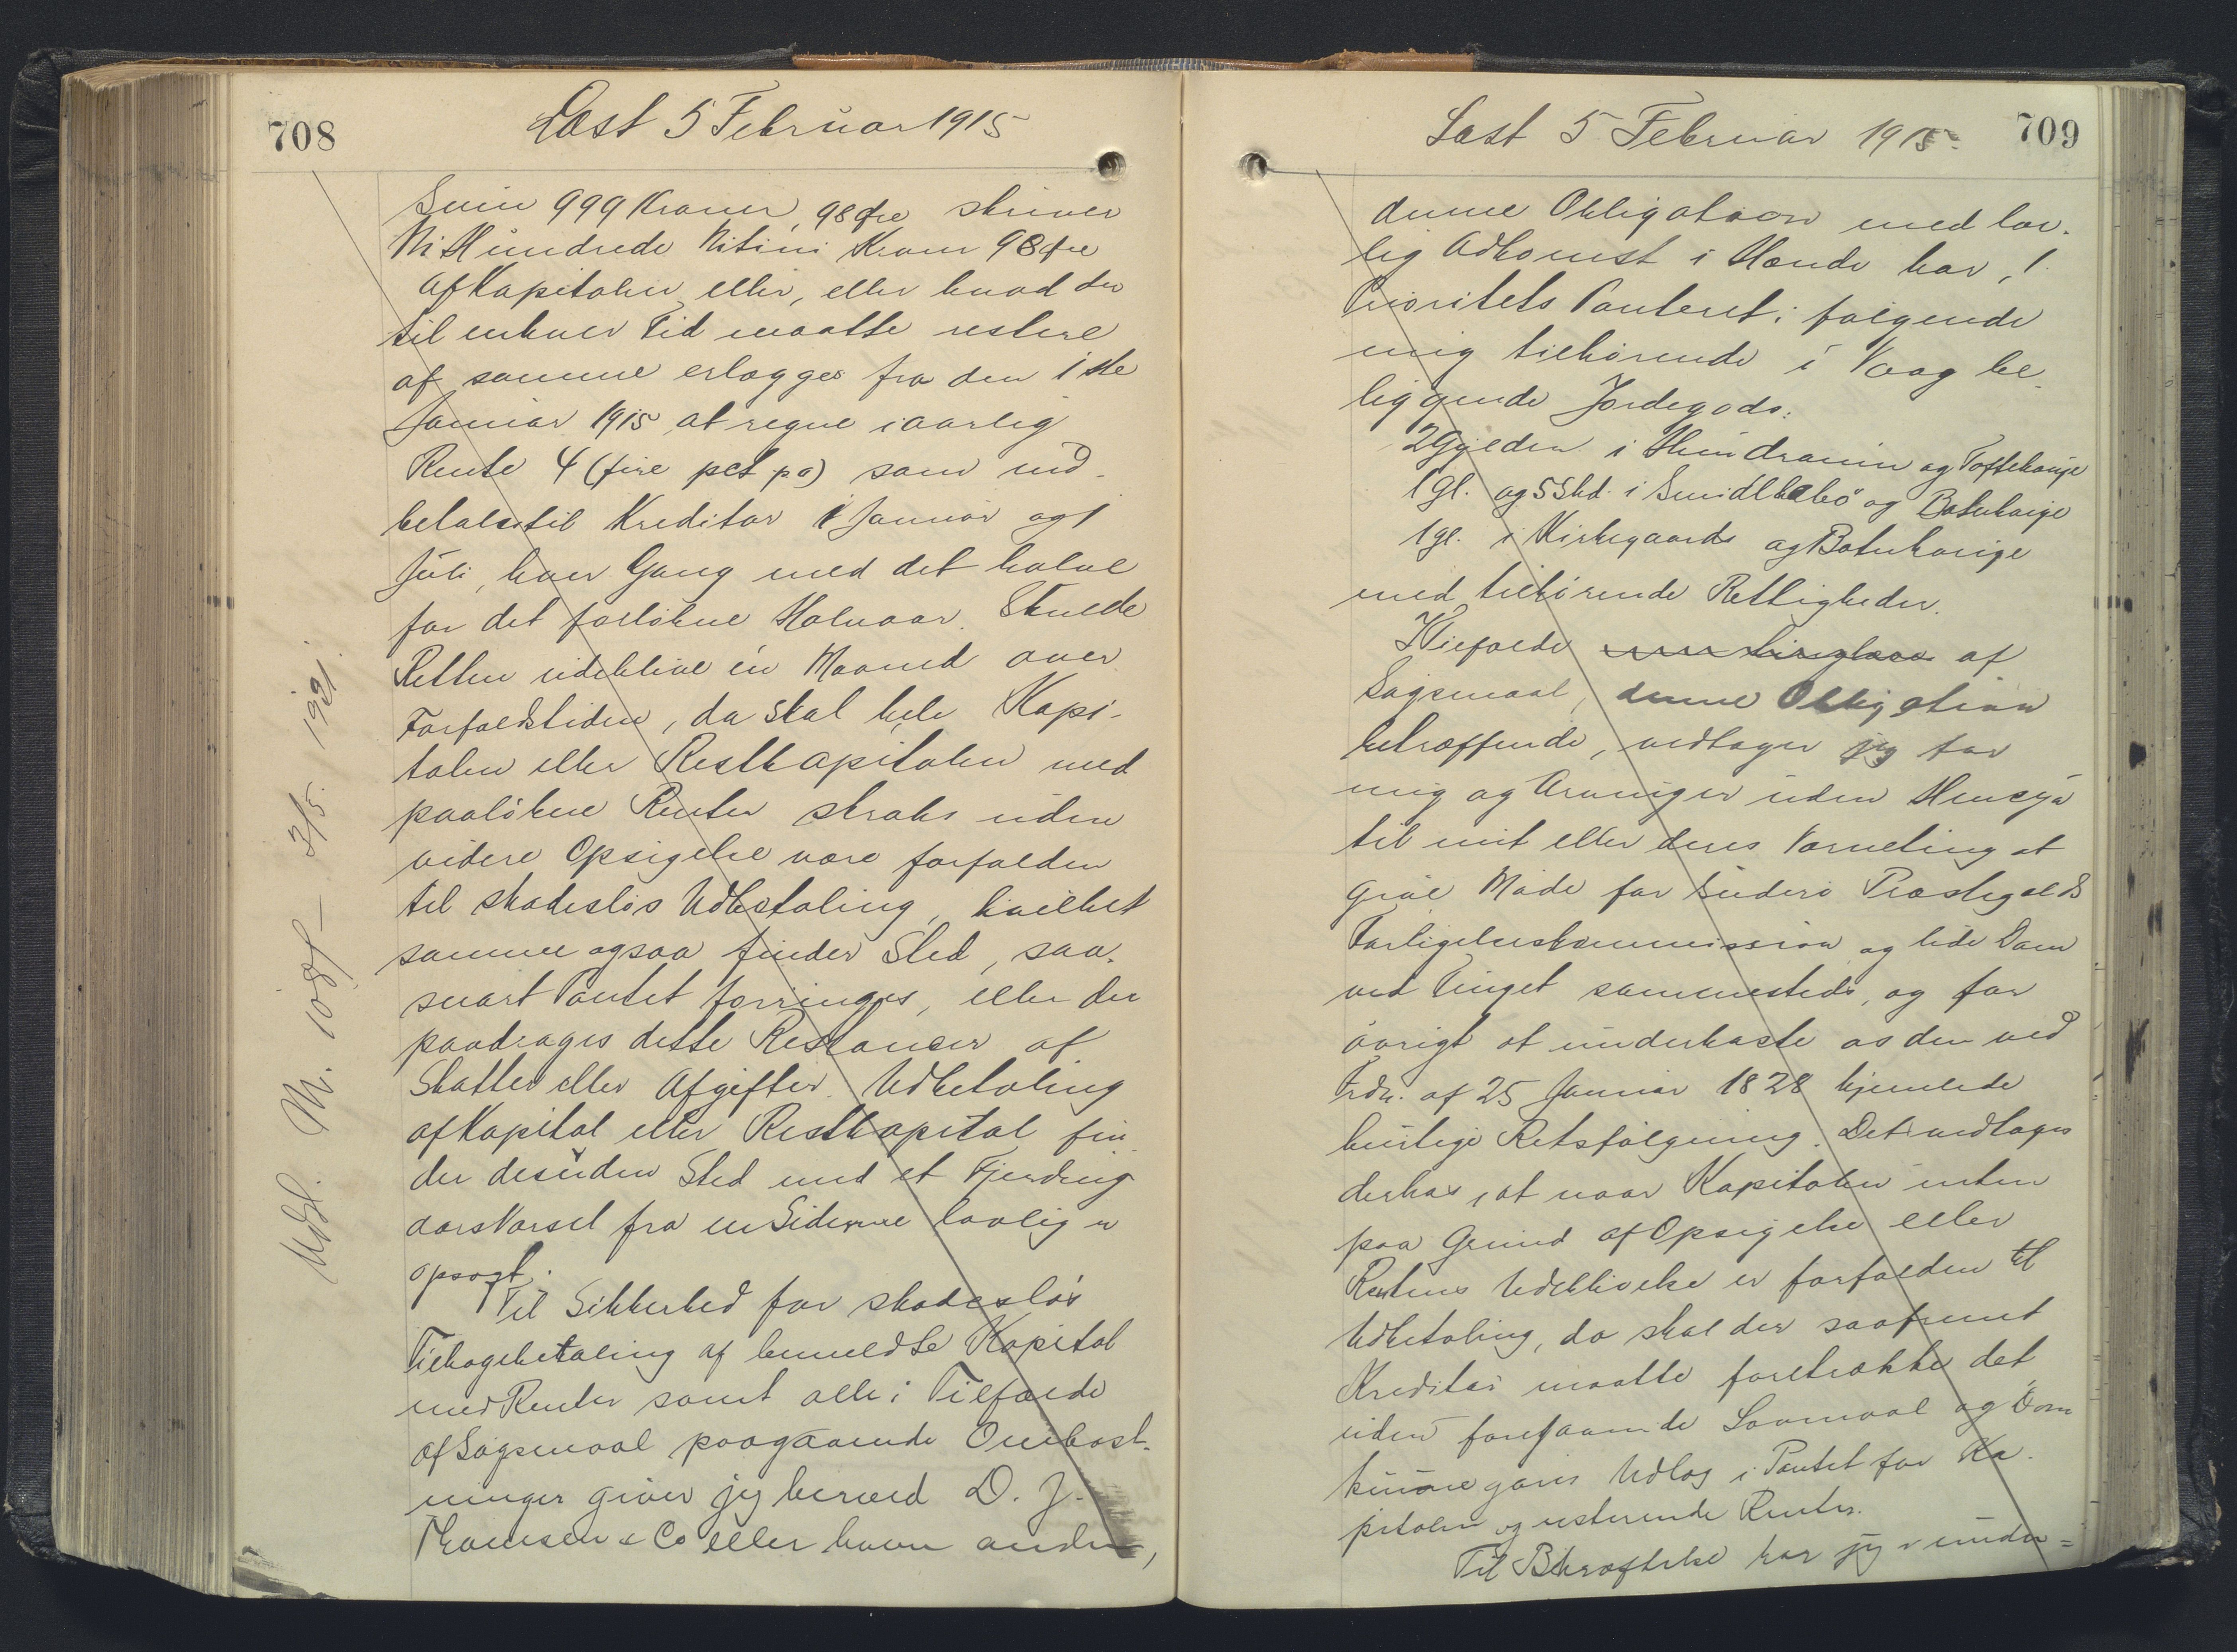 708
Læst 5 Februar 1915
Sum 999 Kroner, 98 Øre skriver
Ni Hundrede Nitini Kroner 98 Øre
Af Kapitalen eller, eller hvad der
til enhver Tid maatte restere
af samme erlægges fra den 1ste
Januar 1915 at regne i aarlig
Rente 4 (fire pct pa) som ind-
betales til Kreditor 1 Januar og 1
Juli, hver Gang med det halve
for det forløbne Halvaar. Skulde
Retten udeblive én Maaned over
Forfaldstiden, da skal hele Kapi-
talen eller Restkapitalen med
paaløbne Renter straks uden
videre Opsigelse være forfalden
til skadesløs Udbetaling, hvilket
samme ogsaa finder Sted, saa-
snart Pantet forringes, eller der
paadrages dette Restancer af
Skatter eller Afgifter. Udbetaling
af Kapital eller Restkapital fin-
der desuden Sted med et Fjerding
aars Varsel fra en Siderne lovlig er
opsagt.
Til Sikkerhed for skadesløs
Tilbagebetaling af bemeldte Kapital
med Renter samt alle i Tilfælde
af Søgsmaal paagaaende Omkost-
ninger giver jeg herved D. J.
Thomsen & Co eller hvem anden,
Udsl. M. 108 f - 3/5. 1921.
Læst 5 Februar 1915.
709
denne Obligation med lov-
lig Adkomst i Hænde har, 1.
Prioritets Panteret i følgende
mig tilhørende i Vaag be-
liggende Jordegods:
2 Gylden i Hundranin og Toftehauje
1 gl. og 5 Skd. i Smidlkebø og Botnhauge
1 gl. i Kirkegaards og Botnhauge
med tilhørende Rettigheder.
I Tilfælde af
Søgsmaal, denne Obligation
betræffende, vedtager jeg for
mig og Arvinger uden Hensyn
til mit eller deres Værneting at
give Møde for Suderø Præstegælds
Forligelseskommission og lide Dom
ved Tinget sammesteds, og for
øvrigt at underkaste os den ved
Frdn. af 25 Januar 1828 hjemlede
hurtige Retsfølgning. Det vedtages
derhos, at naar Kapitalen enten
paa Grund af Opsigelse eller
Rentens Udeblivelse er forfalden til
Udbetaling, da skal der saafremt
Kreditor maatte foretrække det,
uden foregaaende Lovmaal og Dom
kunne gøres Udlæg i Pantet for Ka-
pitalen og resterende Renter.
Til Bekræftelse har jeg under=